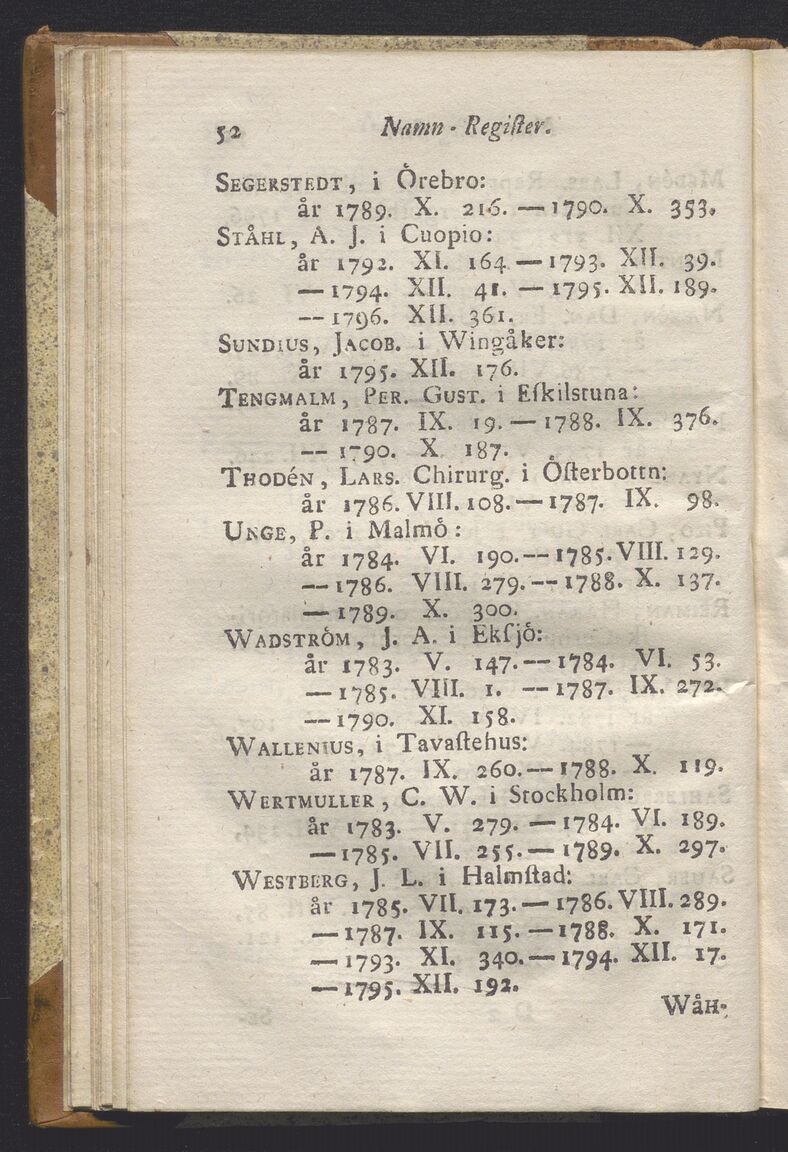 52 Namn - Regiſter.
SEGERSTEDT, i Örebro:
år 1789. X. 216. — 1790. X. 353.
STÅHL, A. J. i Cuopio:
år 1792. XI. 164 — 1793. XII. 39.
— 1794. XII. 41. — 1795. XII. 189.
— 1796. XII. 361.
SUNDIUS, JACOB. i Wingåker:
år 1795. XII. 176.
TENGMALM, PER. GUST. i Eſkilstuna:
år 1787. IX. 19. — 1788. IX. 376.
— 1790. X. 187.
THODÉN, LARS. Chirurg. i Öſterbottn:
år 1786. VIII. 108. — 1787. IX. 98.
UNGE, P. i Malmö:
år 1784. VI. 190. — 1785. VIII. 129.
— 1786. VIII. 279. — 1788. X. 137.
— 1789. X. 300.
WADSTRÖM, J. A. i Ekſjö:
år 1783. V. 147. — 1784. VI. 53.
— 1785. VIII. 1. — 1787. IX. 272.
— 1790. XI. 158.
WALLENIUS, i Tavaſtehus:
år 1787. IX. 260. — 1788. X. 119.
WERTMULLER, C. W. i Stockholm:
år 1783. V. 279. — 1784. VI. 189.
— 1785. VII. 255. — 1789. X. 297.
WESTBERG, J. L. i Halmſtad:
år 1785. VII. 173. — 1786. VIII. 289.
— 1787. IX. 115. — 1788. X. 171.
— 1793. XI. 340. — 1794. XII. 17.
— 1795. XII. 192.
WÅH-